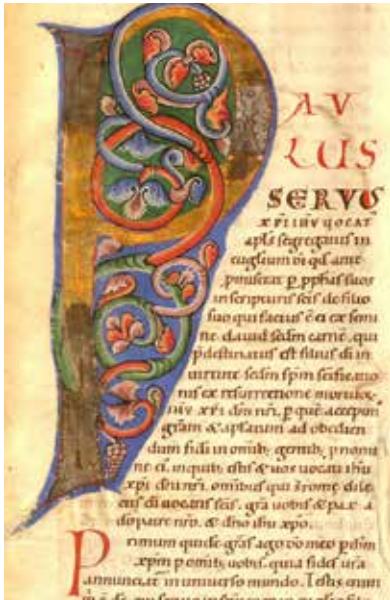 P
AV
LUS
SERVUS
XPI IHU VOCAT
apls segregatus in
euglium di qd ante
pmiserat p pphas suos
in scripturis scis de filio
suo qui factus e ei ex semi
ne dauid scdm carne, qui
pdestinatus est filius di in
uirtute scdm spm scificatio
nis ex resurrectione mortuoȝ
ihu xpi dni nri, p que accepim
gram & aplatum ad obedien
dum fidei in omnib; gentib; p nomi
ne ei, in quib; estis & uos uocati ihu
xpi dni nri. omnibus qui st rome dile
ctis di uocatis scis. gra uobis & pax a
do patre nro. & dno ihu xpo.
Primum quide gras ago do meo p ihm
xpm p omib; uobis. quia fides ura
annunciat in uniuerso mundo. Testis enim